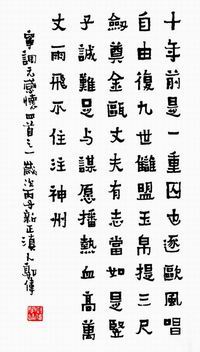 十年前是一重囚也逐歐風唱
自由復九世讎盟玉帛提三尺
劍奠金甌丈夫有志當如是豎
子誠難足与謀愿播熱血高萬
丈雨飛不住注神州
寧調元感懷四首之一歲次丙子新正滇人郭偉